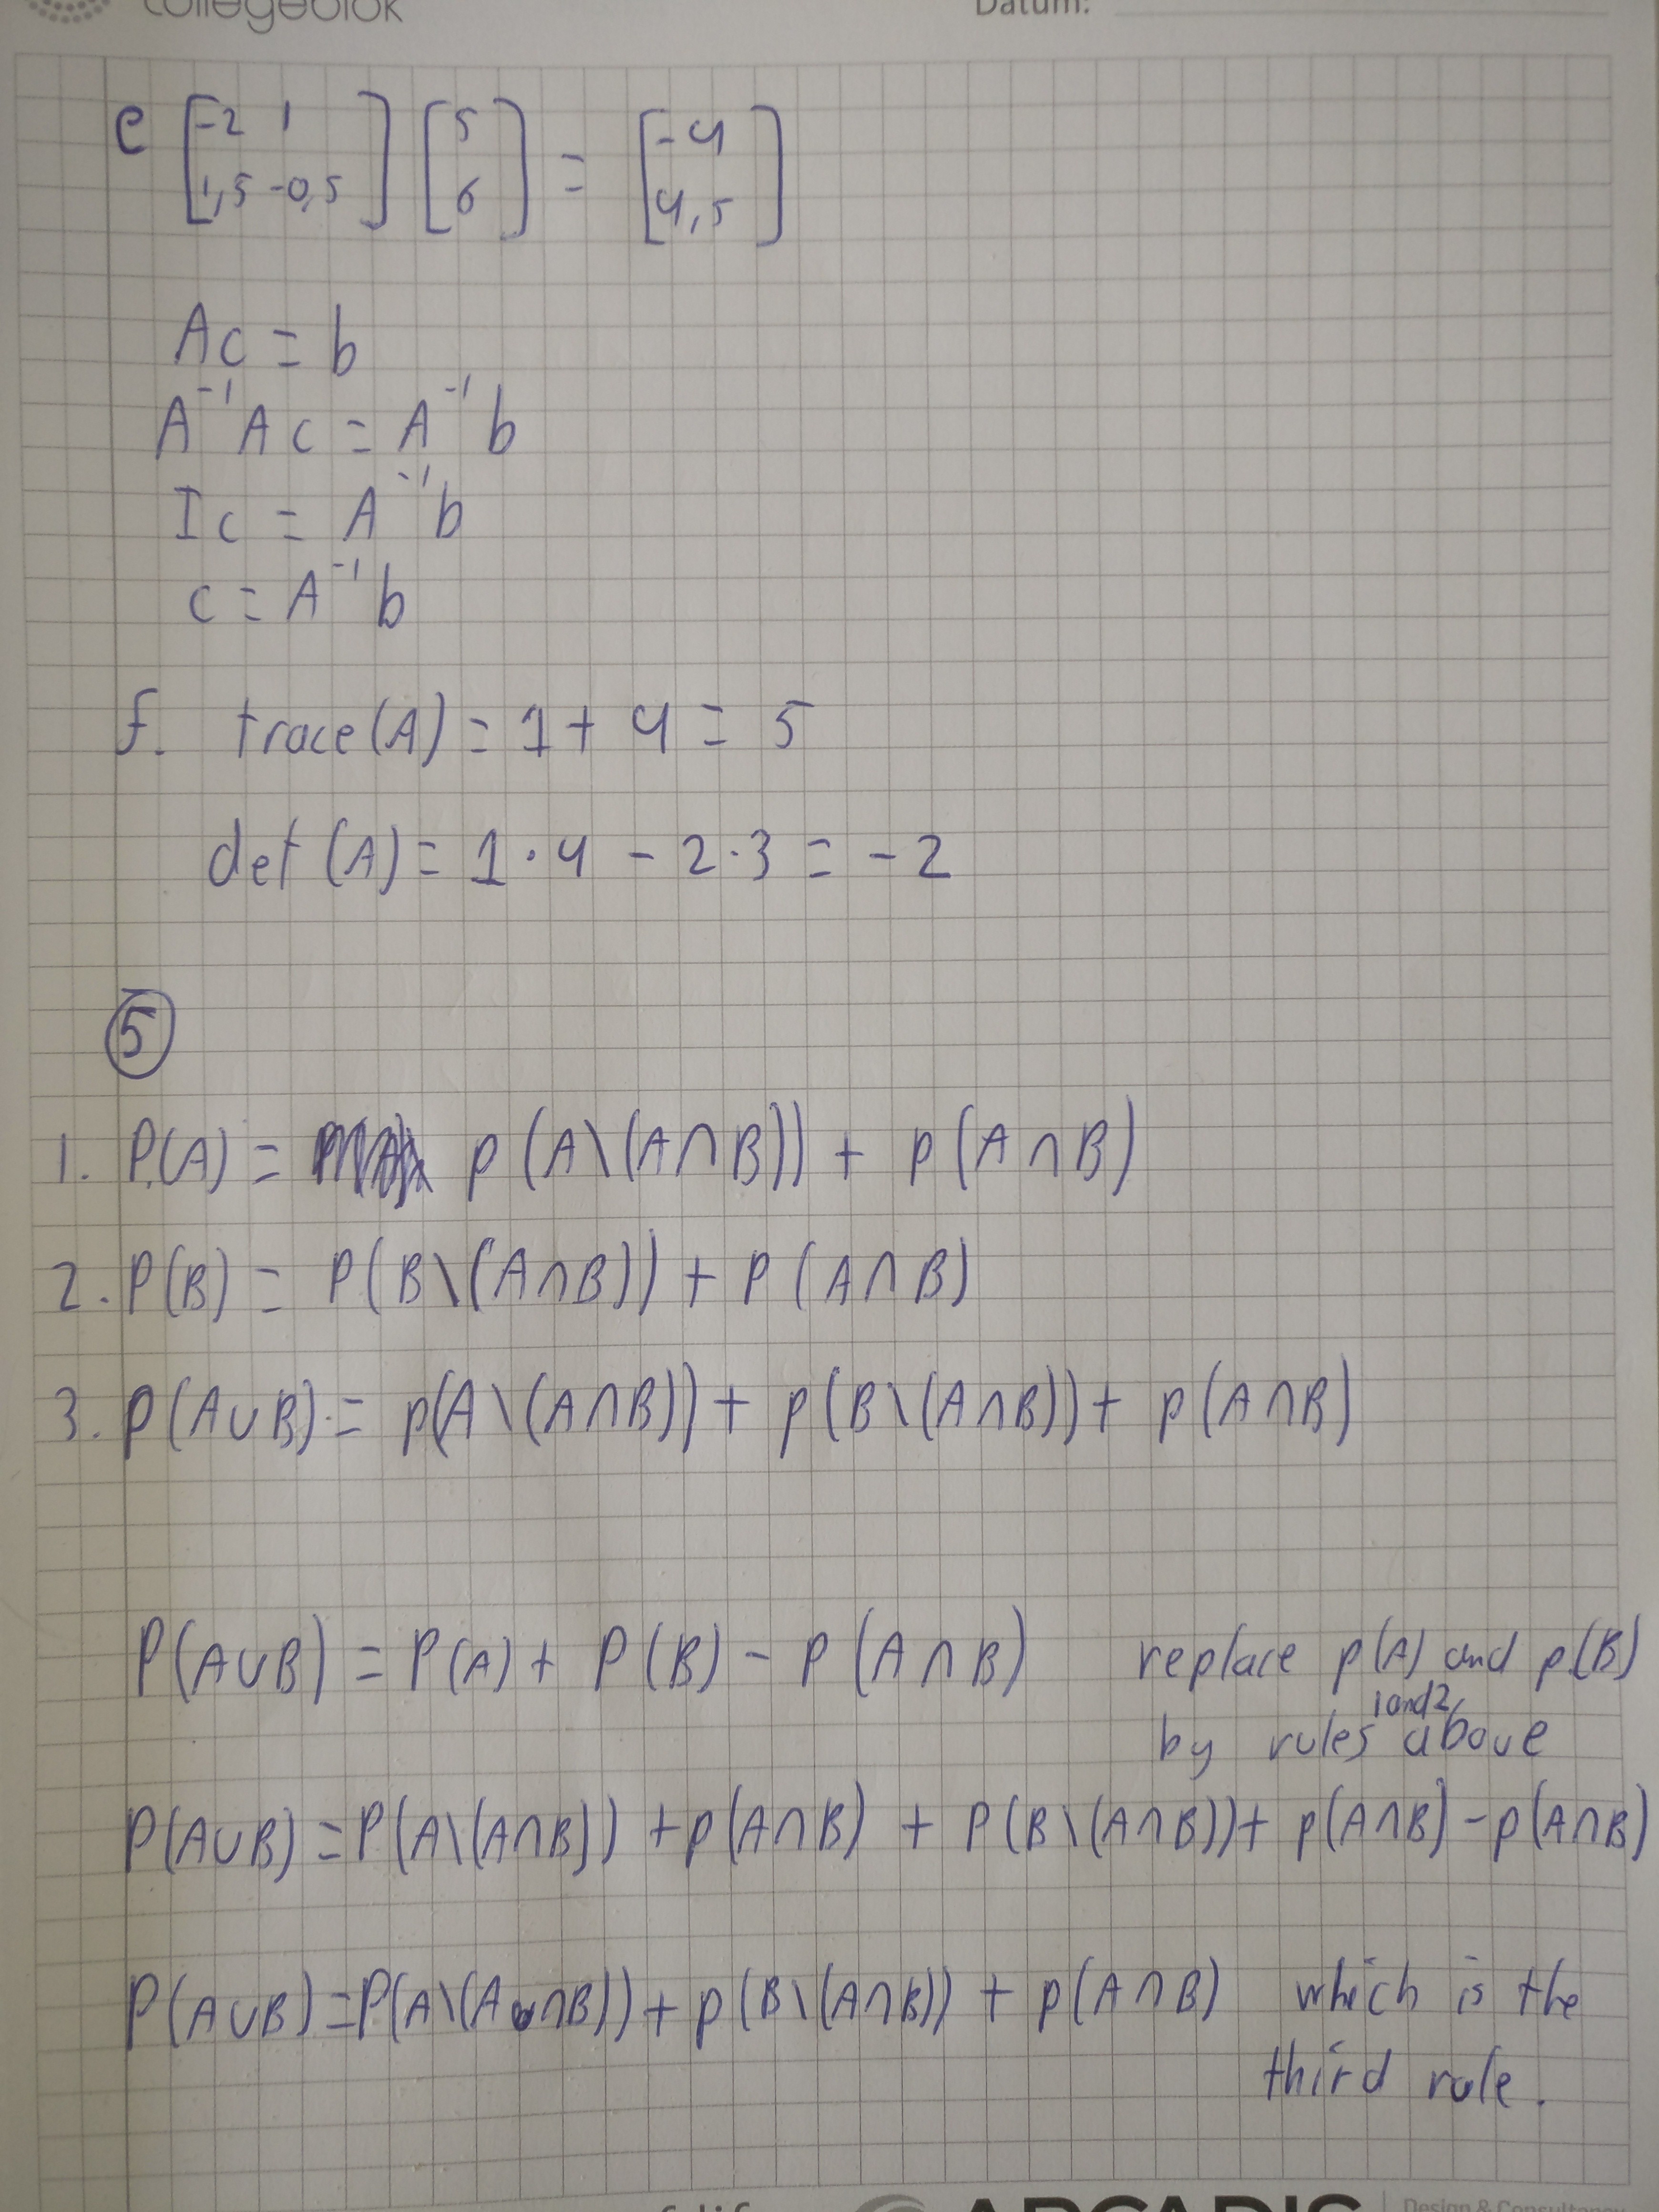 collegeblok Datum:
e [-2 1 ; 1,5 -0,5] [5 ; 6] = [-4 ; 4,5]
Ac = b
A⁻¹Ac = A⁻¹b
Ic = A⁻¹b
c = A⁻¹b
f. trace(A) = 1 + 4 = 5
det(A) = 1·4 - 2·3 = -2
5
1. P(A) = p(A\(A∩B)) + p(A∩B)
2. P(B) = P(B\(A∩B)) + P(A∩B)
3. p(A∪B) = p(A\(A∩B)) + p(B\(A∩B)) + p(A∩B)
P(A∪B) = P(A) + P(B) - P(A∩B) replace p(A) and p(B)
by rules 1 and 2 above
P(A∪B) = P(A\(A∩B)) + p(A∩B) + P(B\(A∩B)) + p(A∩B) - p(A∩B)
P(A∪B) = P(A\(A∩B)) + p(B\(A∩B)) + p(A∩B) which is the
third rule.
ARCADIS Design & Consultancy